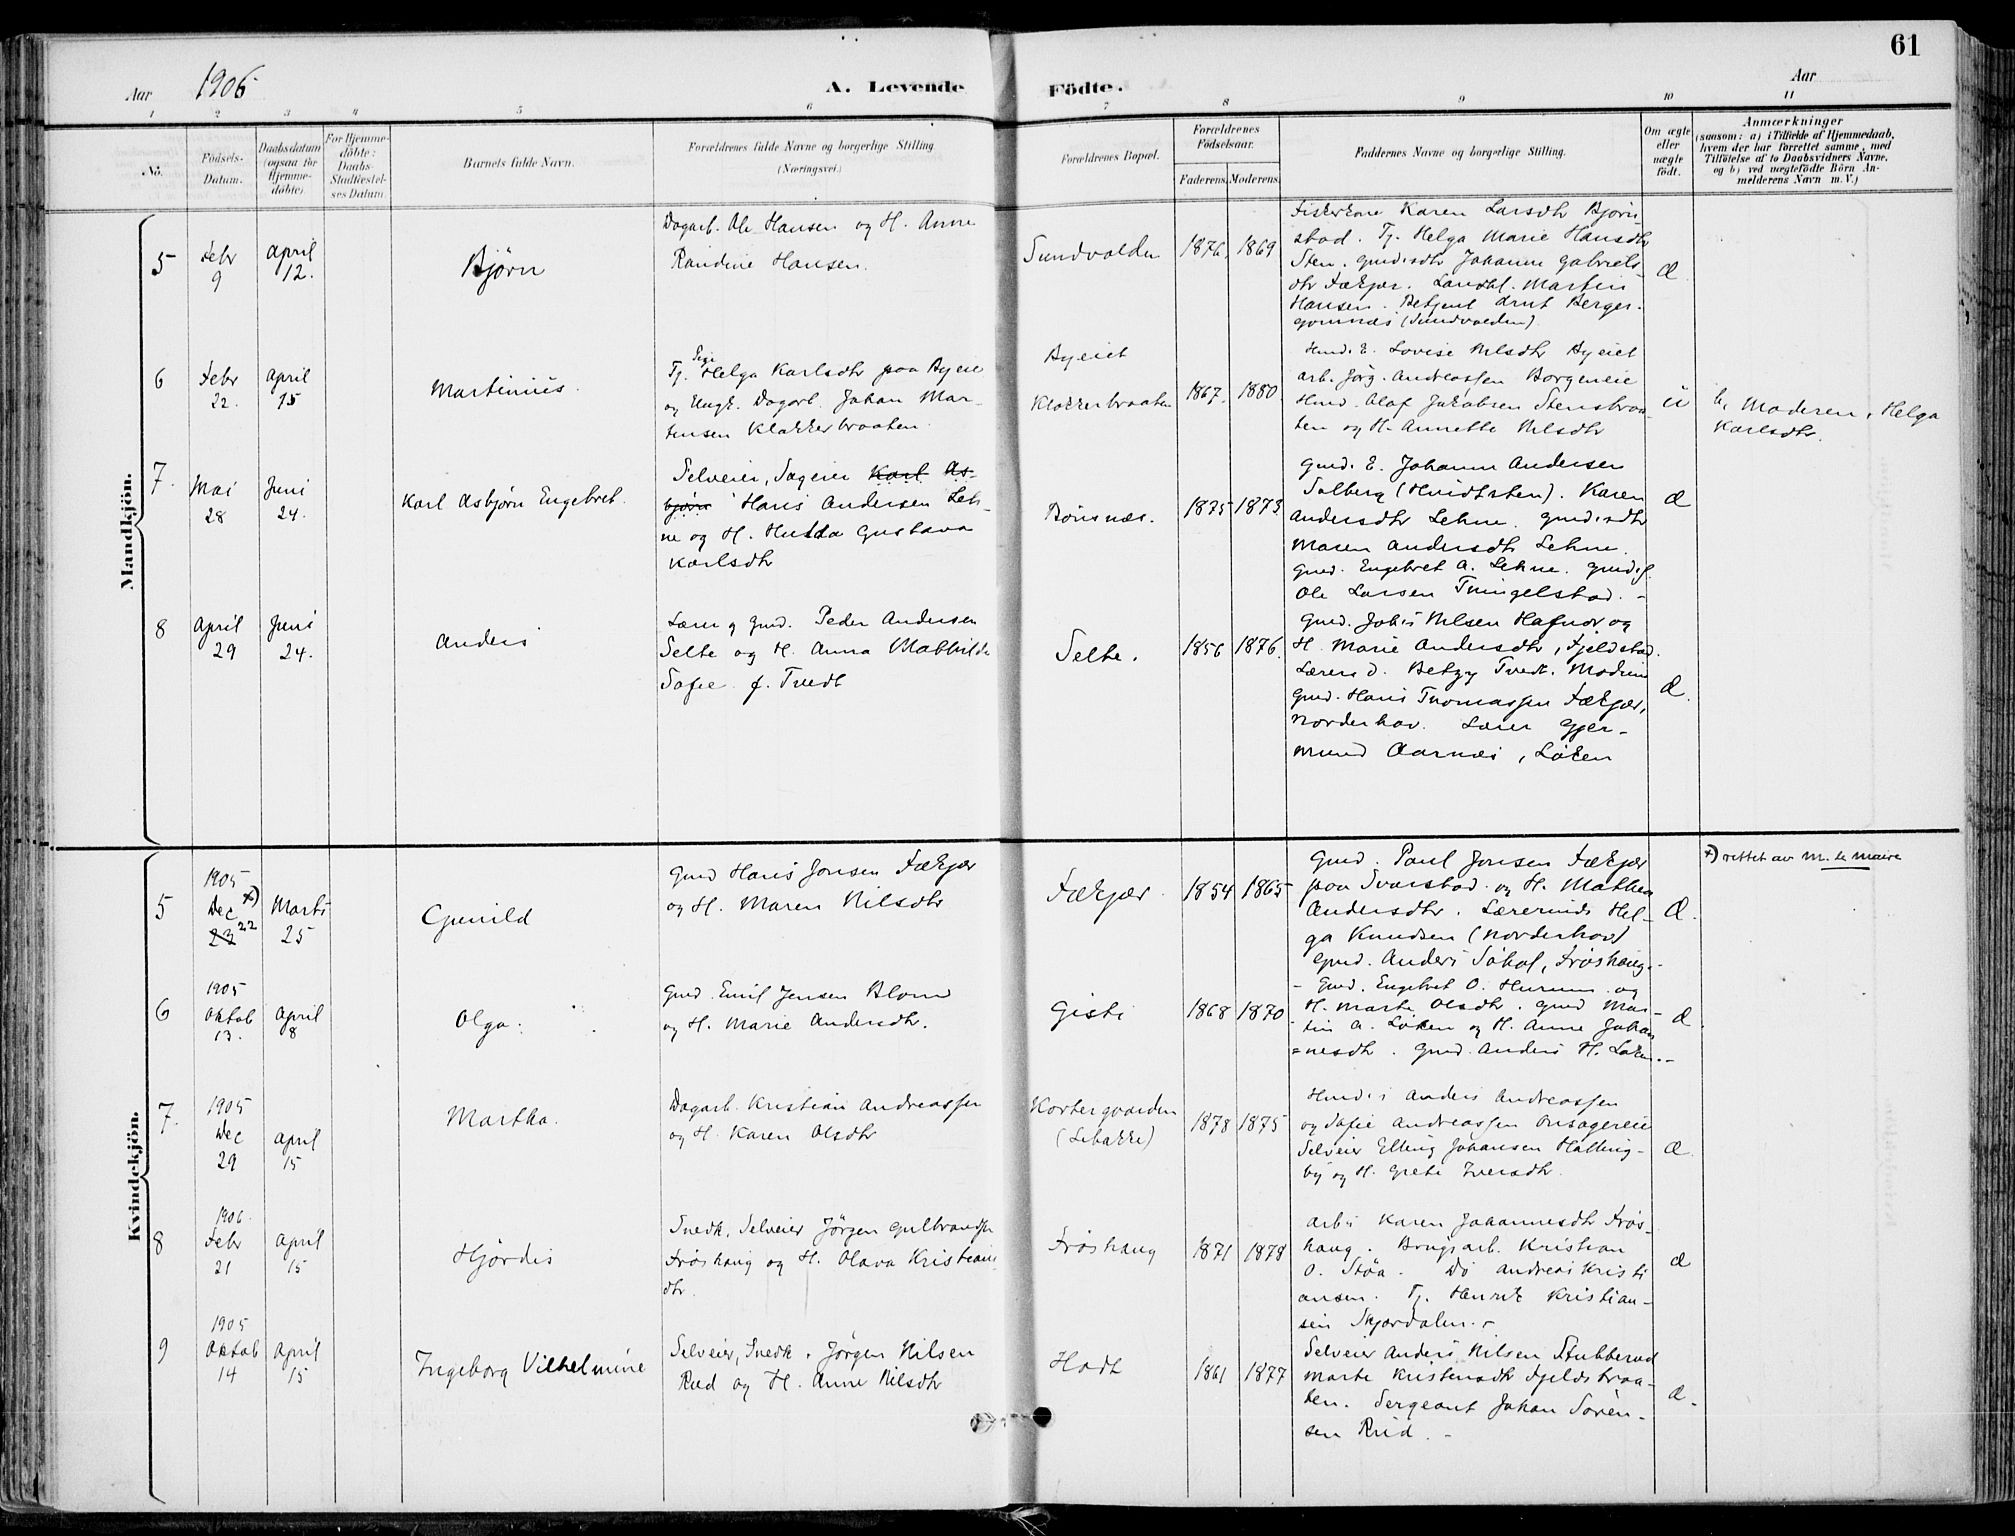 61
Aar 1906
A. Levende Födte.
Aar
1 2 3 4 5 6 7 8 9 10 11
No.
Födsels-Datum.
Daabsdatum (ogsaa for Hjemme-döbte).
For Hjemme-döbte: Daabs Stadfæstel-ses Datum.
Barnets fulde Navn.
Forældrenes fulde Navne og borgerlige Stilling.
(Næringsvei.)
Forældrenes Bopæl.
Forældrenes Födselsaar.
Faderens. Moderens.
Faddernes Navne og borgerlige Stilling.
Om ægte eller uægte födt.
Anmærkninger
(saasom: a) i Tilfælde af Hjemmedaab,
hvem der har forrettet samme, med
Tilföielse af to Daabsvidners Navne,
og b) ved uægtefödte Börn An-
melderens Navn m. V.)
Mandkjön.
5
Febr 9
April 12.
Bjørn
Dagarb. Ole Hansen og H. Anne
Randine Hansen.
Sundvolden
1876. 1869
Fiskerkone Karen Larsdtr Bjørn-
stad. Tj. Helga Marie Hansdtr
Sten. Gmdesdtr Johanne Gabriels-
dtr Fækjær. Landhl. Martin
Hansen. Betjent Arnt Berger.
Gomnæs (Sundvolden).
Æ
6
Febr 22.
April 15
Martinius.
Pige
Tj. Helga Karlsdtr paa Byeie
og Ungk. Dagarb. Johan Mar-
tensen Klokkerbraaten.
Byeiet
Klokkerbraaten
1867. 1880
Husm. E. Lovise Nilsdtr Byeiet
Arb. Jørg. Andreassen Borgeneie
Husm. Olaf Jakobsen Stensbraa-
ten og H. Annette Nilsdtr
u
b, Moderen, Helga
Karlsdtr.
7.
Mai 28
Juni 24.
Karl Asbjørn Engebret.
Selveier, Sageier Karl As-
bjørn Hans Andersen Leh-
ne og H. Hulda Gustava
Karlsdtr
Bønsnæs.
1875 1873.
Gmd. E. Johanne Andersen
Solberg (Hvidtsten). Karen
Andersdtr Lehne. Gmdesdtr
Maren Andersdtr Lehne.
Gmd. Engebret A. Lehne. Gmdsf.
Ole Larsen Tningelstad. -
Æ
8
April 29
Juni 24.
Anders
Lærer g Gmd. Peder Andersen
Selte og H. Anna Mathilde
Sofie f. Tvedt
Selte.
1856 1876.
Gmd. Johs Nilsen Hafnor og
H. Marie Andersdtr, Fjeldstad.
Lærers d. Betzy Tvedt. Modum
Gmd. Hans Thomassen Fækjær,
Norderhov. Lærer Gjer-
mund Aarnæs, Løken
Æ.
Kvindekjön.
5
1905
Dec +)
23 22
Marts 25
Gunild
Gmd Hans Jonsen Fækjær
og H. Maren Nilsdtr
Fækjær.
1854 1865
Gmd. Paul Jonsen Fækjær
paa Svarstad og H. Mathea
Andersdtr. Lærerinde Hel-
ga Knudsen (Norderhov)
Gmd. Anders Søhol, Frøshaug.-
Æ.
+) rettet av M. le Maire
6
1905
Oktob 13.
April 8
Olga.
Gmd. Emil Jensen Blom
og H. Marie Andersdtr.
Gisti
1868 1870
- Gmd. Engebret O. Hurum og
H. Marte Olsdtr. Gmd Mar-
tin A. Løken og H. Anne Johan
=nesdtr. Gmd. Anders H. Løken.-
Æ
7.
1905
Dec 29
April 15
Martha.
Dagarb. Kristian Andreassen
og H. Karen Olsdtr
Kortergaarden
(Lebakke)
1878 1875
Husm. Anders Andreassen
og Sofie Andreassen Onsagereie
Selveier Elling Johansen Halling-
by og H. Grete Iversdtr.
Æ.
8
1906
Febr 21
April 15
Hjørdis
Snedk, Selveier Jørgen Gulbrandsen
Frøshaug og H. Olava Kristians
dtr.
Frøshaug
1871 1878
Arb. Karen Johannesdtr Frøs-
haug. Brugsarb. Kristian
O. Støa. Do Andreas Kristi
ansen. Tj. Henrik Kristian-
sen Skjærdalen.-
Æ
9
1905
Oktob 14
April 15
Ingeborg Vilhelmine
Selveier, Snedk. Jørgen Nilsen
Rud og H. Anne Nilsdtr
Hodt
1861 1877
Selveier Anders Nilsen Stubberud
Marte Kristensdtr Fjeldsbraa-
ten. Sergeant Johan Søren-
sen Rud. -
Æ.